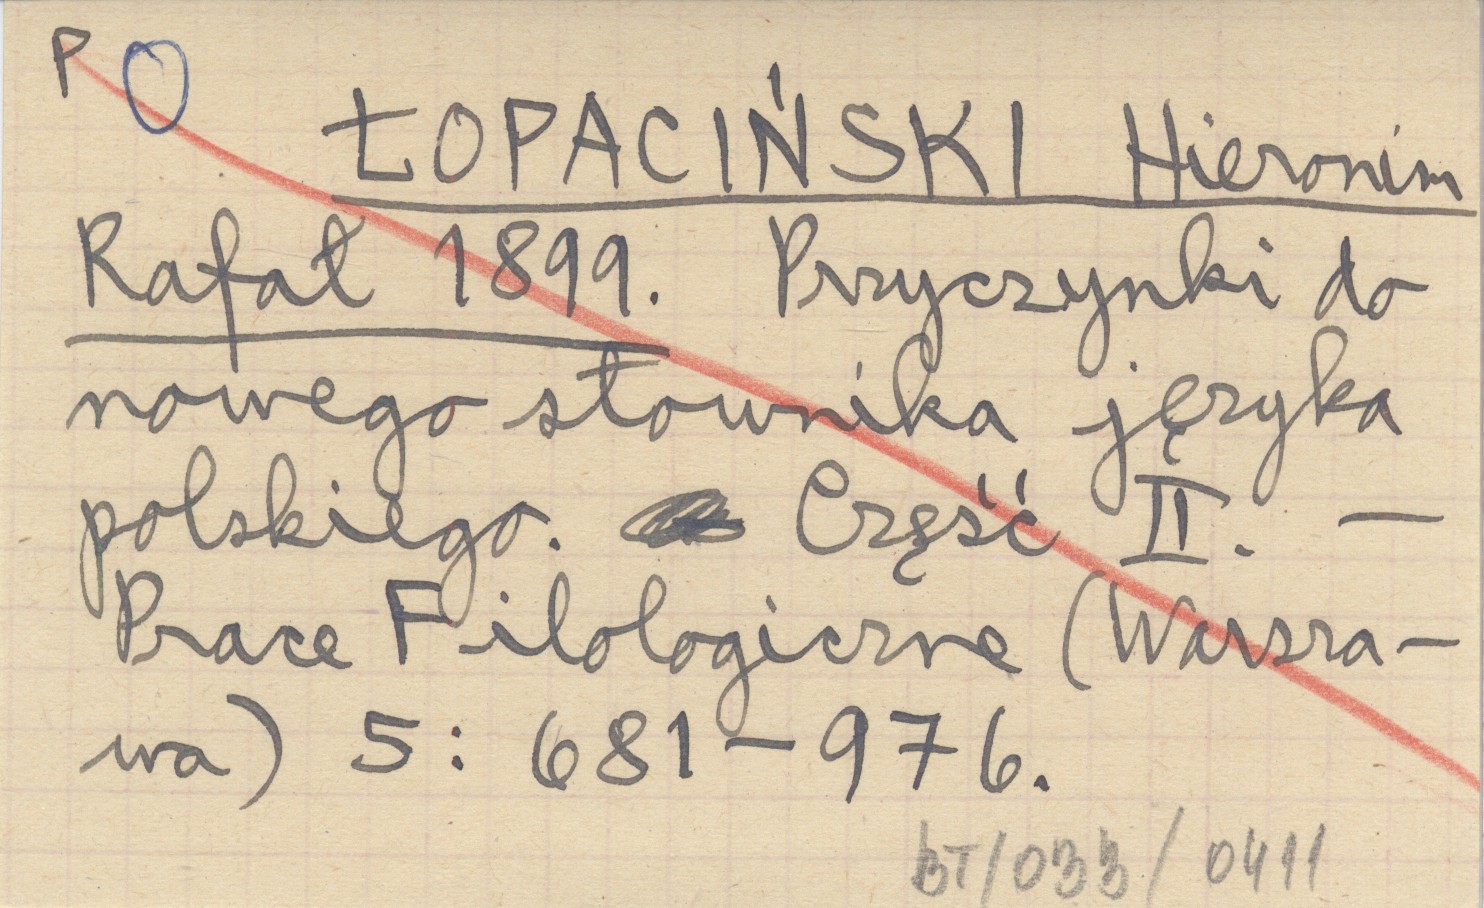 P O
ŁOPACIŃSKI Hieronim
Rafał 1899. Przyczynki do
nowego słownika języka
polskiego. Część II. —
Prace Filologiczne (Warsza-
wa) 5: 681-976.
BT/033/0411